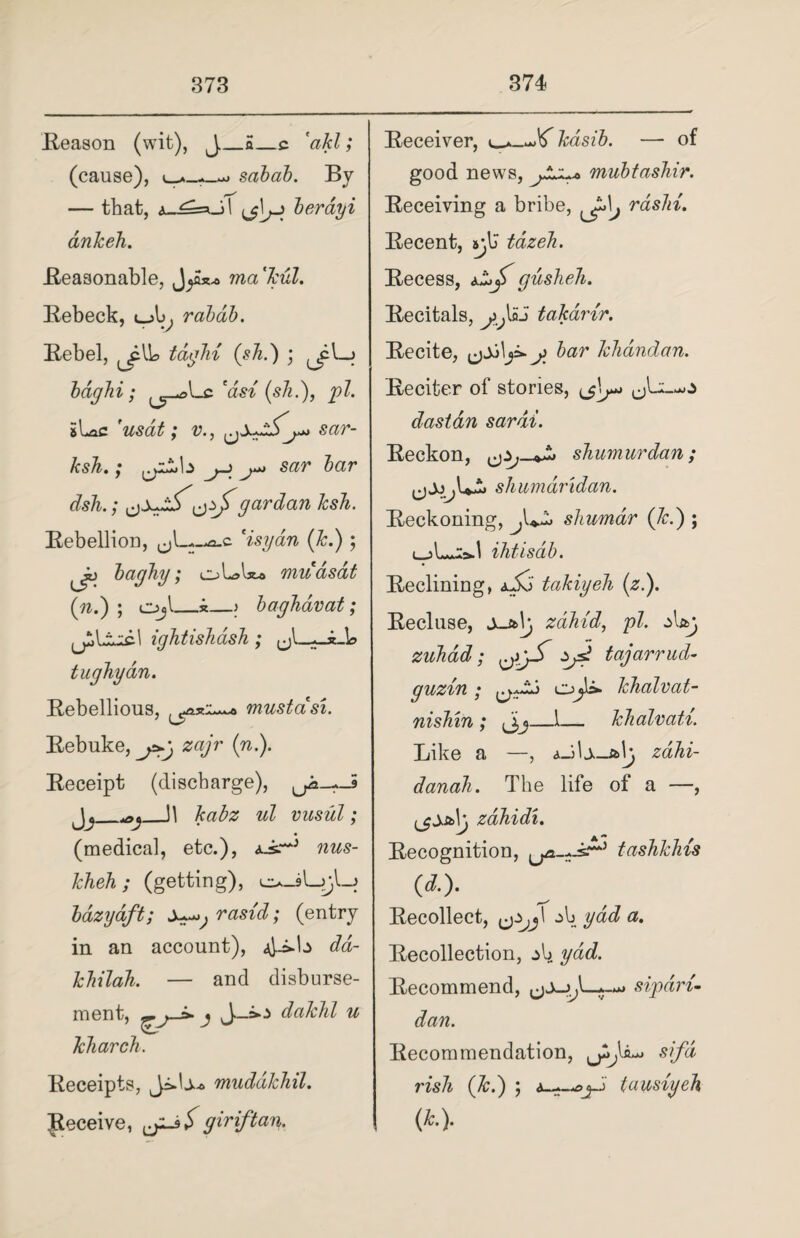 373
374
Reason (wit), عقل 'akl;
(cause), سبب sabab. By
— that, برای آنکه beráyi
ánkeh.
Reasonable, معقول ma'kúl.
Rebeck, رباب rabáb.
Rebel, طاغی tághí (sh.) ; باغی
bághi; عاصی 'ásí (sh.), pl.
عصاة 'usát; v., سرکشیدن sar-
ksh.; سر بر داشتن sar bar
dsh.; گردن کشیدن gardan ksh.
Rebellion, عصیان 'isyán (k.) ;
بغی baghy; معاصات mu'ását
(n.) ; بغاوت baghávat;
اغتشاش ightishásh; طغیان
tughyán.
Rebellious, مستعصی musta'sí.
Rebuke, زجر zajr (n.).
Receipt (discharge), قبض
الوصول kabz ul vusúl;
(medical, etc.), نسخه nus-
kheh; (getting), بازیافت
bázyáft; رسید rasíd; (entry
in an account), داخله dá-
khilah. — and disburse-
ment, دخل و خرج dakhl u
kharch.
Receipts, مداخل muddákhil.
Receive, گرفتن giriftan.
Receiver, کاسب kásib. — of
good news, مبتشر mubtashir.
Receiving a bribe, راشی ráshí.
Recent, تازه tázeh.
Recess, گوشه gúsheh.
Recitals, تقاریر takárír.
Recite, بر خواندن bar khándan.
Reciter of stories, داستان سرای
dastán sarái.
Reckon, شمردن shumurdan;
شماریدن shumárídan.
Reckoning, شمار shumár (k.) ;
احتساب ihtisáb.
Reclining, تکیه takiyeh (z.).
Recluse, زاهد záhíd, pl. زهاد
zuhád; تجرد گزین tajarrud-
guzín; خلوت نشین khalvat-
nishín; خلوتی khalvatí.
Like a —, زاهدانه záhi-
danah. The life of a —,
زاهدی záhidí.
Recognition, تشخیص tashkhís
(d.).
Recollect, یاد آوردن yád a.
Recollection, یاد yád.
Recommend, سپاریدن sipárí-
dan.
Recommendation, سفارش sifá
rish (k.) ; توصیه tausíyeh
(k.).